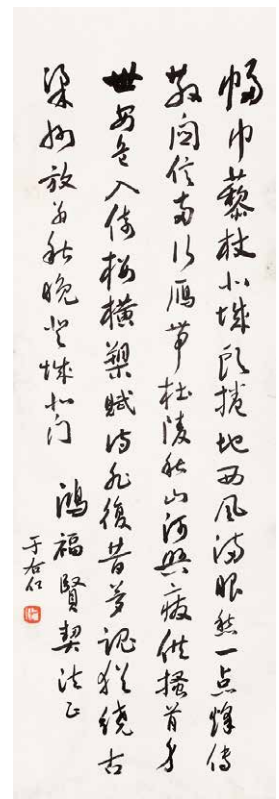 幅巾藜杖北城頭捲地西風滿眼愁一点烽傳
散關信兩行雁帶杜陵秋山河興廢供搔首身
世安危入倚樓橫槊賦詩非復昔夢魂猶繞古
梁州放翁秋晚登城北门
鴻福賢契法正
于右任